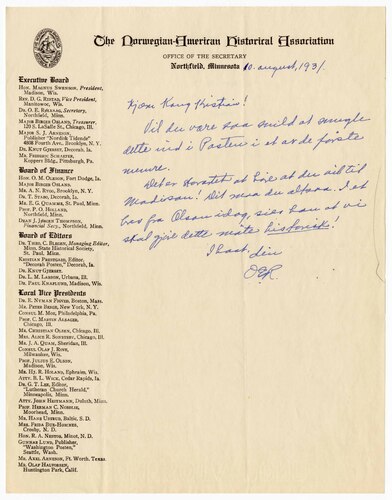 The Norwegian-American Historical Association
OFFICE OF THE SECRETARY
Northfield, Minnesota 10. august, 1931.
Executive Board
HON. MAGNUS SWENSON, President,
Madison, Wis.
REV. D. G. RISTAD, Vice President,
Manitowoc, Wis.
DR. O. E. RØLVAAG, Secretary,
Northfield, Minn.
MAJOR BIRGER OSLAND, Treasurer,
120 S. LaSalle St., Chicago, Ill.
MAJOR S. J. ARNESEN,
Publisher "Nordisk Tidende"
4808 Fourth Ave., Brooklyn, N. Y.
DR. KNUT GJERSET, Decorah, Ia.
MR. FREDRIC SCHAEFER,
Koppers Bldg., Pittsburgh, Pa.
Board of Finance
HON. O. M. OLESON, Fort Dodge, Ia.
MAJOR BIRGER OSLAND.
MR. A. N. RYGG, Brooklyn, N. Y.
DR. T. STABO, Decorah, Ia.
MR. E. G. QUAMME, St. Paul, Minn.
PROF. P. O. HOLLAND,
Northfield, Minn.
DEAN J. JØRGEN THOMPSON,
Financial Secy., Northfield, Minn.
Board of Editors
DR. THEO. C. BLEGEN, Managing Editor,
Minn. State Historical Society,
St. Paul, Minn.
KRISTIAN PRESTGARD, Editor,
"Decorah Posten," Decorah, Ia.
DR. KNUT GJERSET.
DR. L. M. LARSON, Urbana, Ill.
DR. PAUL KNAPLUND, Madison, Wis.
Local Vice Presidents
DR. E. NYMAN FIGVED, Boston, Mass.
MR. PETER BERGE, New York, N. Y.
CONSUL M. MOE, Philadelphia, Pa.
PROF. C. MARTIN ALSAGER,
Chicago, Ill.
MR. CHRISTIAN OLSEN, Chicago, Ill.
MRS. ALICE R. SONSTEBY, Chicago, Ill.
MR. J. A. QUAM, Sheridan, Ill.
CONSUL OLAF J. ROVE,
Milwaukee, Wis.
PROF. JULIUS E. OLSON,
Madison, Wis.
MR. HJ. R. HOLAND, Ephraim, Wis.
ATTY. B. L. WICK, Cedar Rapids, Ia.
DR. G. T. LEE, Editor,
"Lutheran Church Herald,"
Minneapolis, Minn.
ATTY. JOHN HEITMANN, Duluth, Minn.
PROF. HERMAN C. NORDLIE,
Moorhead, Minn.
MR. HANS USTRUD, Baltic, S. D.
MRS. FRIDA BUE-HOMNES,
Crosby, N. D.
HON. R. A. NESTOS, Minot, N. D.
GUNNAR LUND, Publisher,
"Washington Posten,"
Seattle, Wash.
MR. AXEL ARNESON, Ft. Worth, Texas.
MR. OLAF HALTORSEN,
Huntington Park, Calif.
Kjære Kong Kristian!
Vil du være saa snild at smugle
dette ind i Posten i et av de første
numre.
Det er at du vil til
Madison! Dit maa du
brev fra Olson idag, sier han at vi
skal gjøre dette møte historisk!
I hast, din
OER.